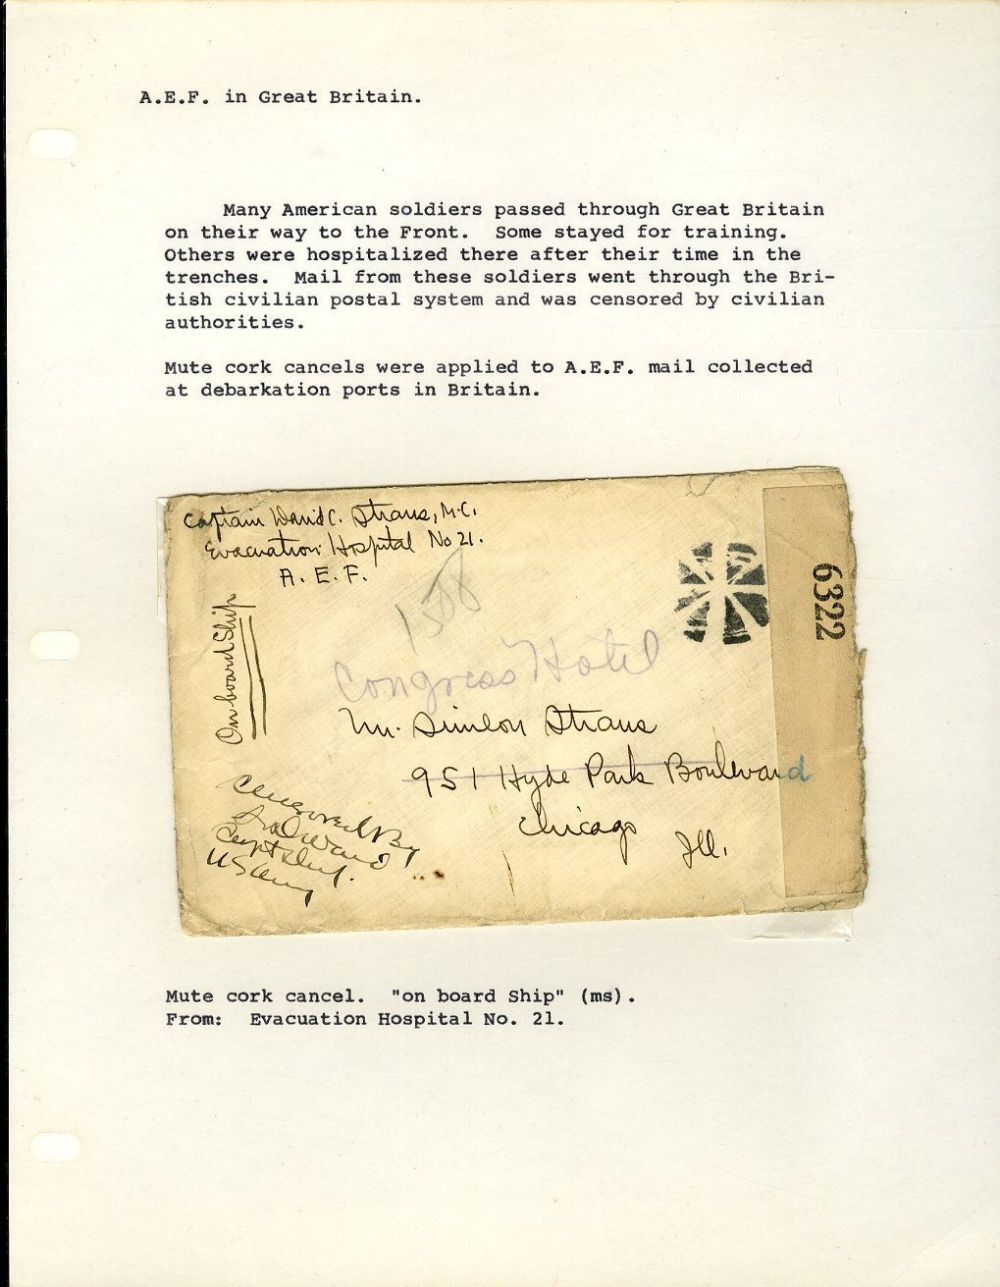 A.E.F. in Great Britain.
Many American soldiers passed through Great Britain
on their way to the Front. Some stayed for training.
Others were hospitalized there after their time in the
trenches. Mail from these soldiers went through the Bri-
tish civilian postal system and was censored by civilian
authorities.
Mute cork cancels were applied to A.E.F. mail collected
at debarkation ports in Britain.
Captain David C. Straus, M.C.
Evacuation Hospital No 21.
A. E. F.
On board Ship
1588
6322
Congress Hotel
Mr. Simeon Straus
951 Hyde Park Boulevard
Chicago
Ill.
Censored By
Capt
US Army
Mute cork cancel. "on board Ship" (ms).
From: Evacuation Hospital No. 21.